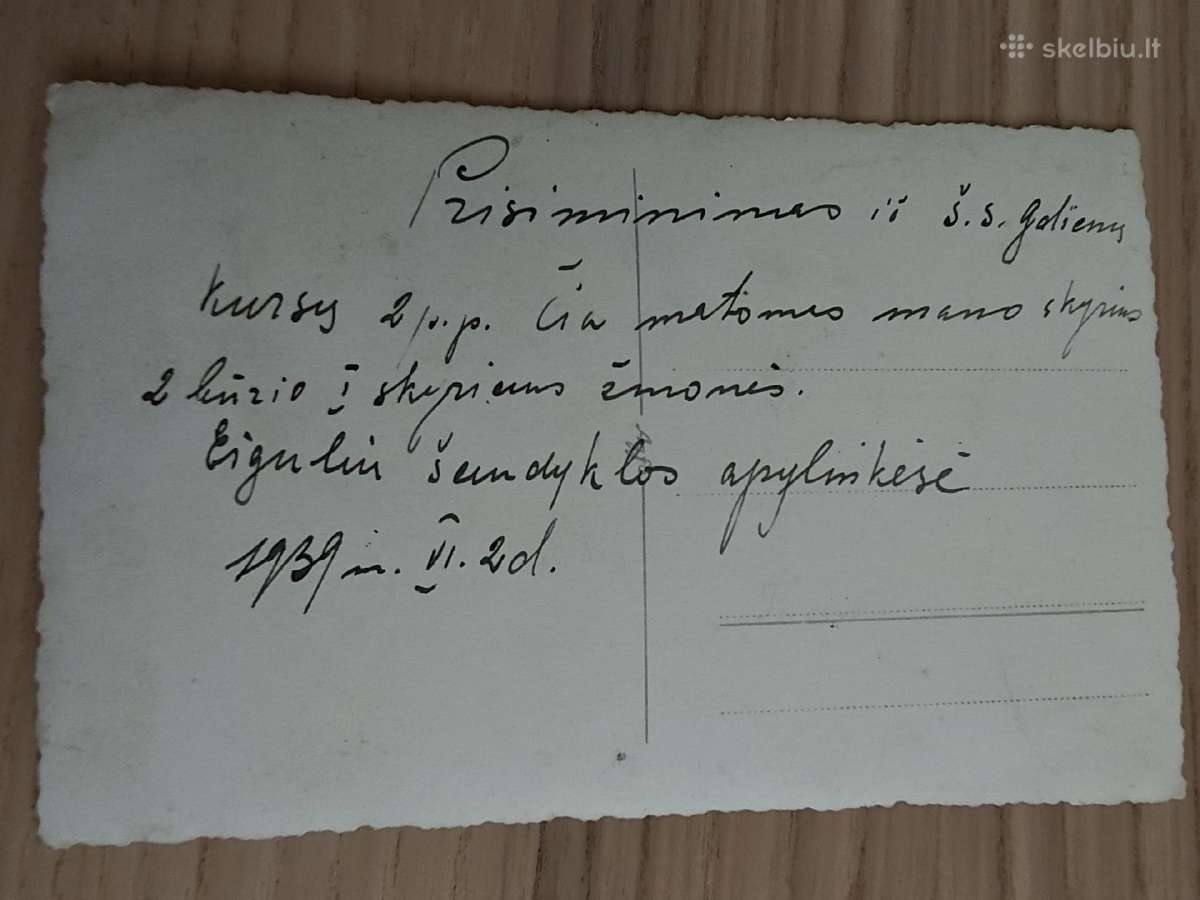 skelbiu.lt
Prisiminimas iš Š.S.
kursų 2 p.p. Čia matomas mano skyrius
2 būrio I skyriaus žmonės.
Eigulių šaudyklos apylinkėsė
1939 m. VI. 2 d.